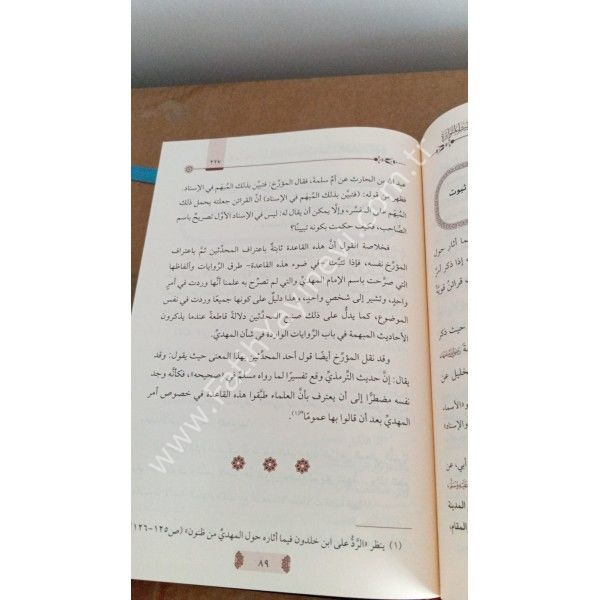 ٢٢٧
عبد الله بن الحارث عن أمّ سلمة، فقال المؤرّخ: فتبيَّن بذلك المُبهم في الإسناد.
فظهر من قوله: (فتبيَّن بذلك المُبهم في الإسناد) أنَّ القرائن جعلته يحمل ذلك
المُبهم على المفسَّر، وإلَّا يمكن أن يقال له: ليس في الإسناد الأوّل تصريحٌ باسم
الصَّاحب، فكيف حكمت بكونه تبيينًا؟
فخلاصة القول أنَّ هذه القاعدة ثابتةٌ باعتراف المحدِّثين ثمَّ باعتراف
المؤرّخ نفسه، فإذا تتبَّعنا -في ضوء هذه القاعدة- طرق الرِّوايات وألفاظها
التي صرَّحت باسم الإمام المهديِّ والتي لم تصرِّح به علمنا أنَّها وردت في أمرٍ
واحدٍ، وتشير إلى شخصٍ واحدٍ، وهذا دليلٌ على كونها جميعًا وردت في نفس
الموضوع، كما يدلُّ على ذلك صنيع المحدِّثين دلالةً قاطعةً عندما يذكرون
الأحاديث المبهمة في باب الرِّوايات الواردة في شأن المهديِّ.
وقد نقل المؤرّخ أيضًا قول أحد المحدِّثين بهذا المعنى حيث يقول: وقد
يقال: إنَّ حديث التِّرمذيِّ وقع تفسيرًا لما رواه مسلمٌ في «صحيحه»، فكأنَّه وجد
نفسه مضطرًّا إلى أن يعترف بأنَّ العلماء طبَّقوا هذه القاعدة في خصوص أمر
المهديِّ بعد أن قالوا بها عمومًا"(١).
(١) ينظر «الرَّدُّ على ابن خلدون فيما أثاره حول المهديِّ من ظنون» (ص١٢٥-١٢٦
٨٩
ثبوت
ما أثار حول
إذا ذكر أمرٌ
قرائن قويَّة
حيث ذكر
الخليل عن
والأسماء
والإسناد
أبي، عن
المدينة
المقام،
www.Fatihyayinevi.com.tr